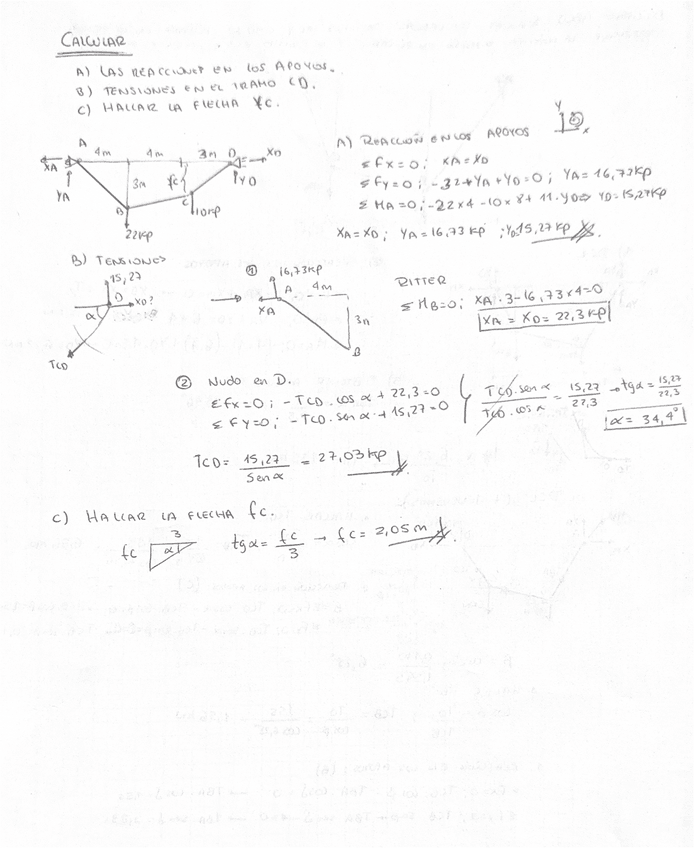 CALCULAR
A) LAS REACCIONES EN LOS APOYOS.
B) TENSIONES EN EL TRAMO CD.
C) HALLAR LA FLECHA fC.
A 4m 4m 3m D XD
XA YA 3m fc C YD
B 22Kp 10Kp
A) REACCIÓN EN LOS APOYOS Y X
Σfx=0; XA=XD
Σfy=0; -32+YA+YD=0; YA=16,73Kp
ΣMA=0; -22x4-10x8+11·YD ⇒ YD=15,27Kp
XA=XD; YA=16,73Kp; YD=15,27Kp
B) TENSIONES
15,27
D XD?
α
TCD
① 16,73Kp
A 4m
XA 3m
B
RITTER
ΣMB=0; XA·3-16,73x4=0
XA = XD = 22,3 Kp
② Nudo en D.
Σfx=0; -TCD·cos α+22,3=0
Σfy=0; -TCD·sen α+15,27=0
TCD·sen α / TCD·cos α = 15,27 / 22,3 → tgα = 15,27 / 22,3
α= 34,4°
TCD= 15,27 / sen α = 27,03 Kp
C) HALLAR LA FLECHA fc.
3
fc α
tgα = fc / 3 → fc = 2,05 m